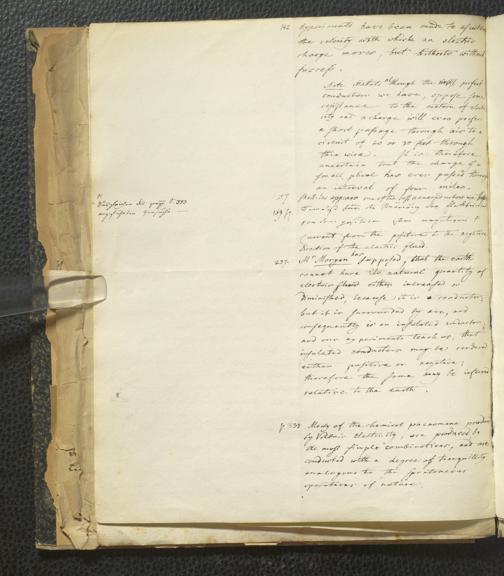 162 Experiments have been made to
the velocity with which an electric
charge moves, but hitherto without
success.
Note Metals though the most perfect
conductors we have, oppose some
resistance to the motion of
a charge will even prefer
a short passage through air to a
circuit of 20 or 30 feet through
thin wire. It is therefore
uncertain that the charge of a
small phial has ever passed through
an interval of four miles.
current from the positive to the negative
direction of the electric fluid.
237. Mr Morgan has supposed, that the earth
cannot have its natural quantity of
electric fluid either increased or
diminished, because it is a conductor;
but it is surrounded by air, and
consequently is an insulated conductor,
and our experiments teach us, that
insulated conductors may be rendered
either positive or negative;
therefore the same may be inferred
relative to the earth.
p 339 Many of the chemical phenomena
by Voltaic electricity, are produced by
the most simple combinations, and are
conducted with a degree of tranquillity
analogous to the spontaneous
operations of nature.